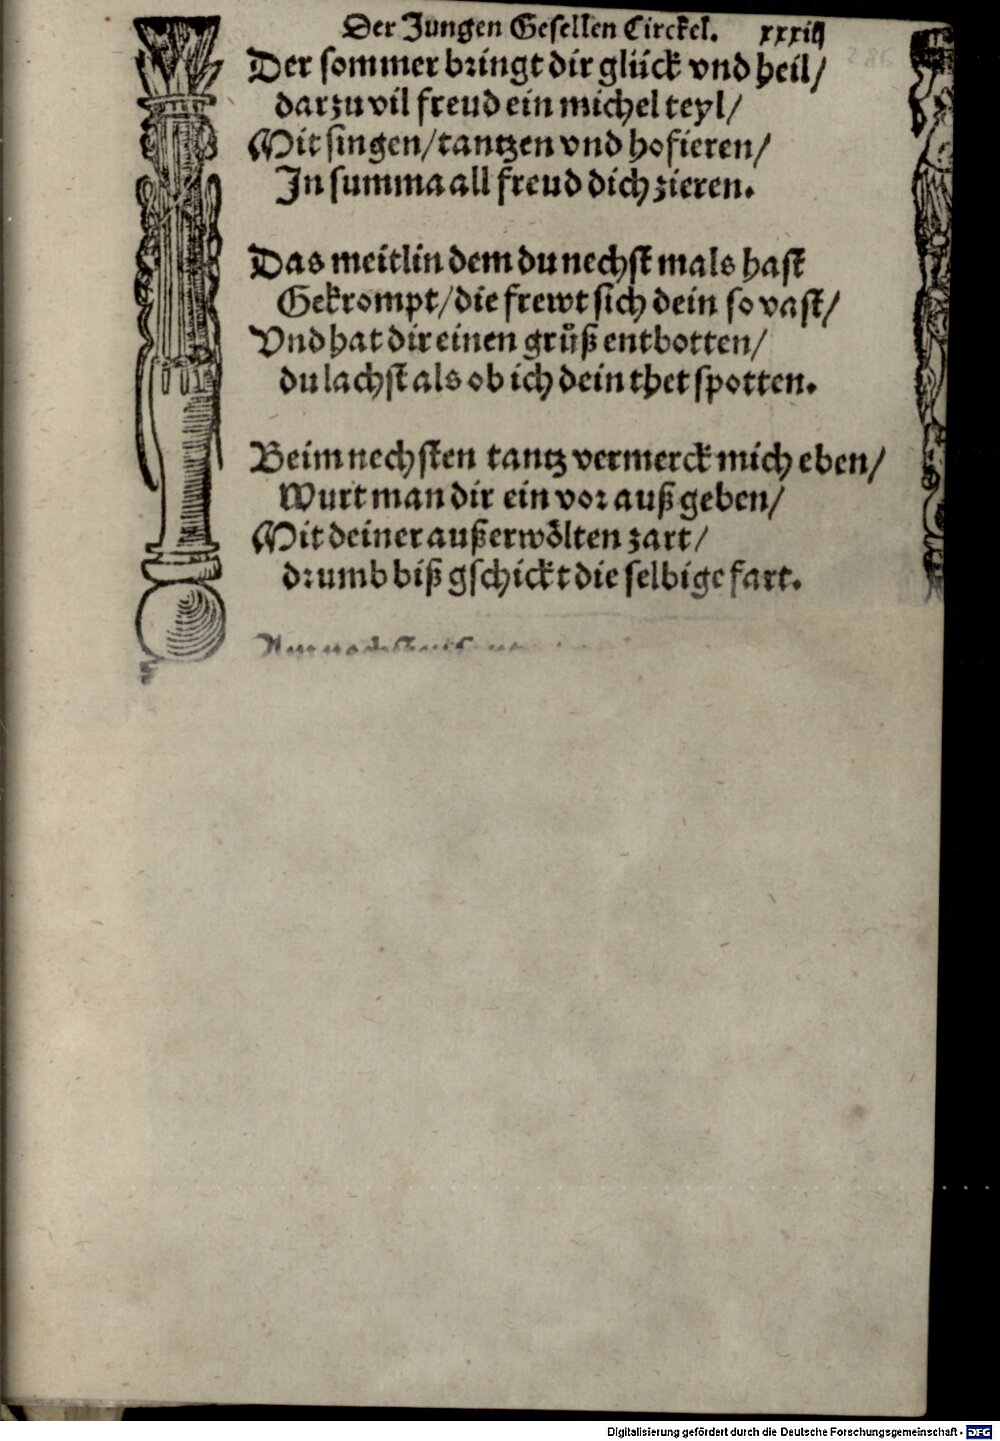 Der Jungen Gesellen Circkel. xxxiij
Der sommer bringt dir glück vnd heil/
darzu vil freud ein michel teyl/
Mit singen/tantzen vnd hofieren/
In summa all freud dich zieren.
Das meitlin dem du nechst mals hast
Gekrompt/die frewt sich dein so vast/
Vnd hat dir einen gruͦß entbotten/
du lachst als ob ich dein thet spotten.
Beim nechsten tantz vermerck mich eben/
Wurt man dir ein vor auß geben/
Mit deiner außerwoͤlten zart/
drumb biß gschickt die selbige fart.
Digitalisierung gefördert durch die Deutsche Forschungsgemeinschaft - DFG